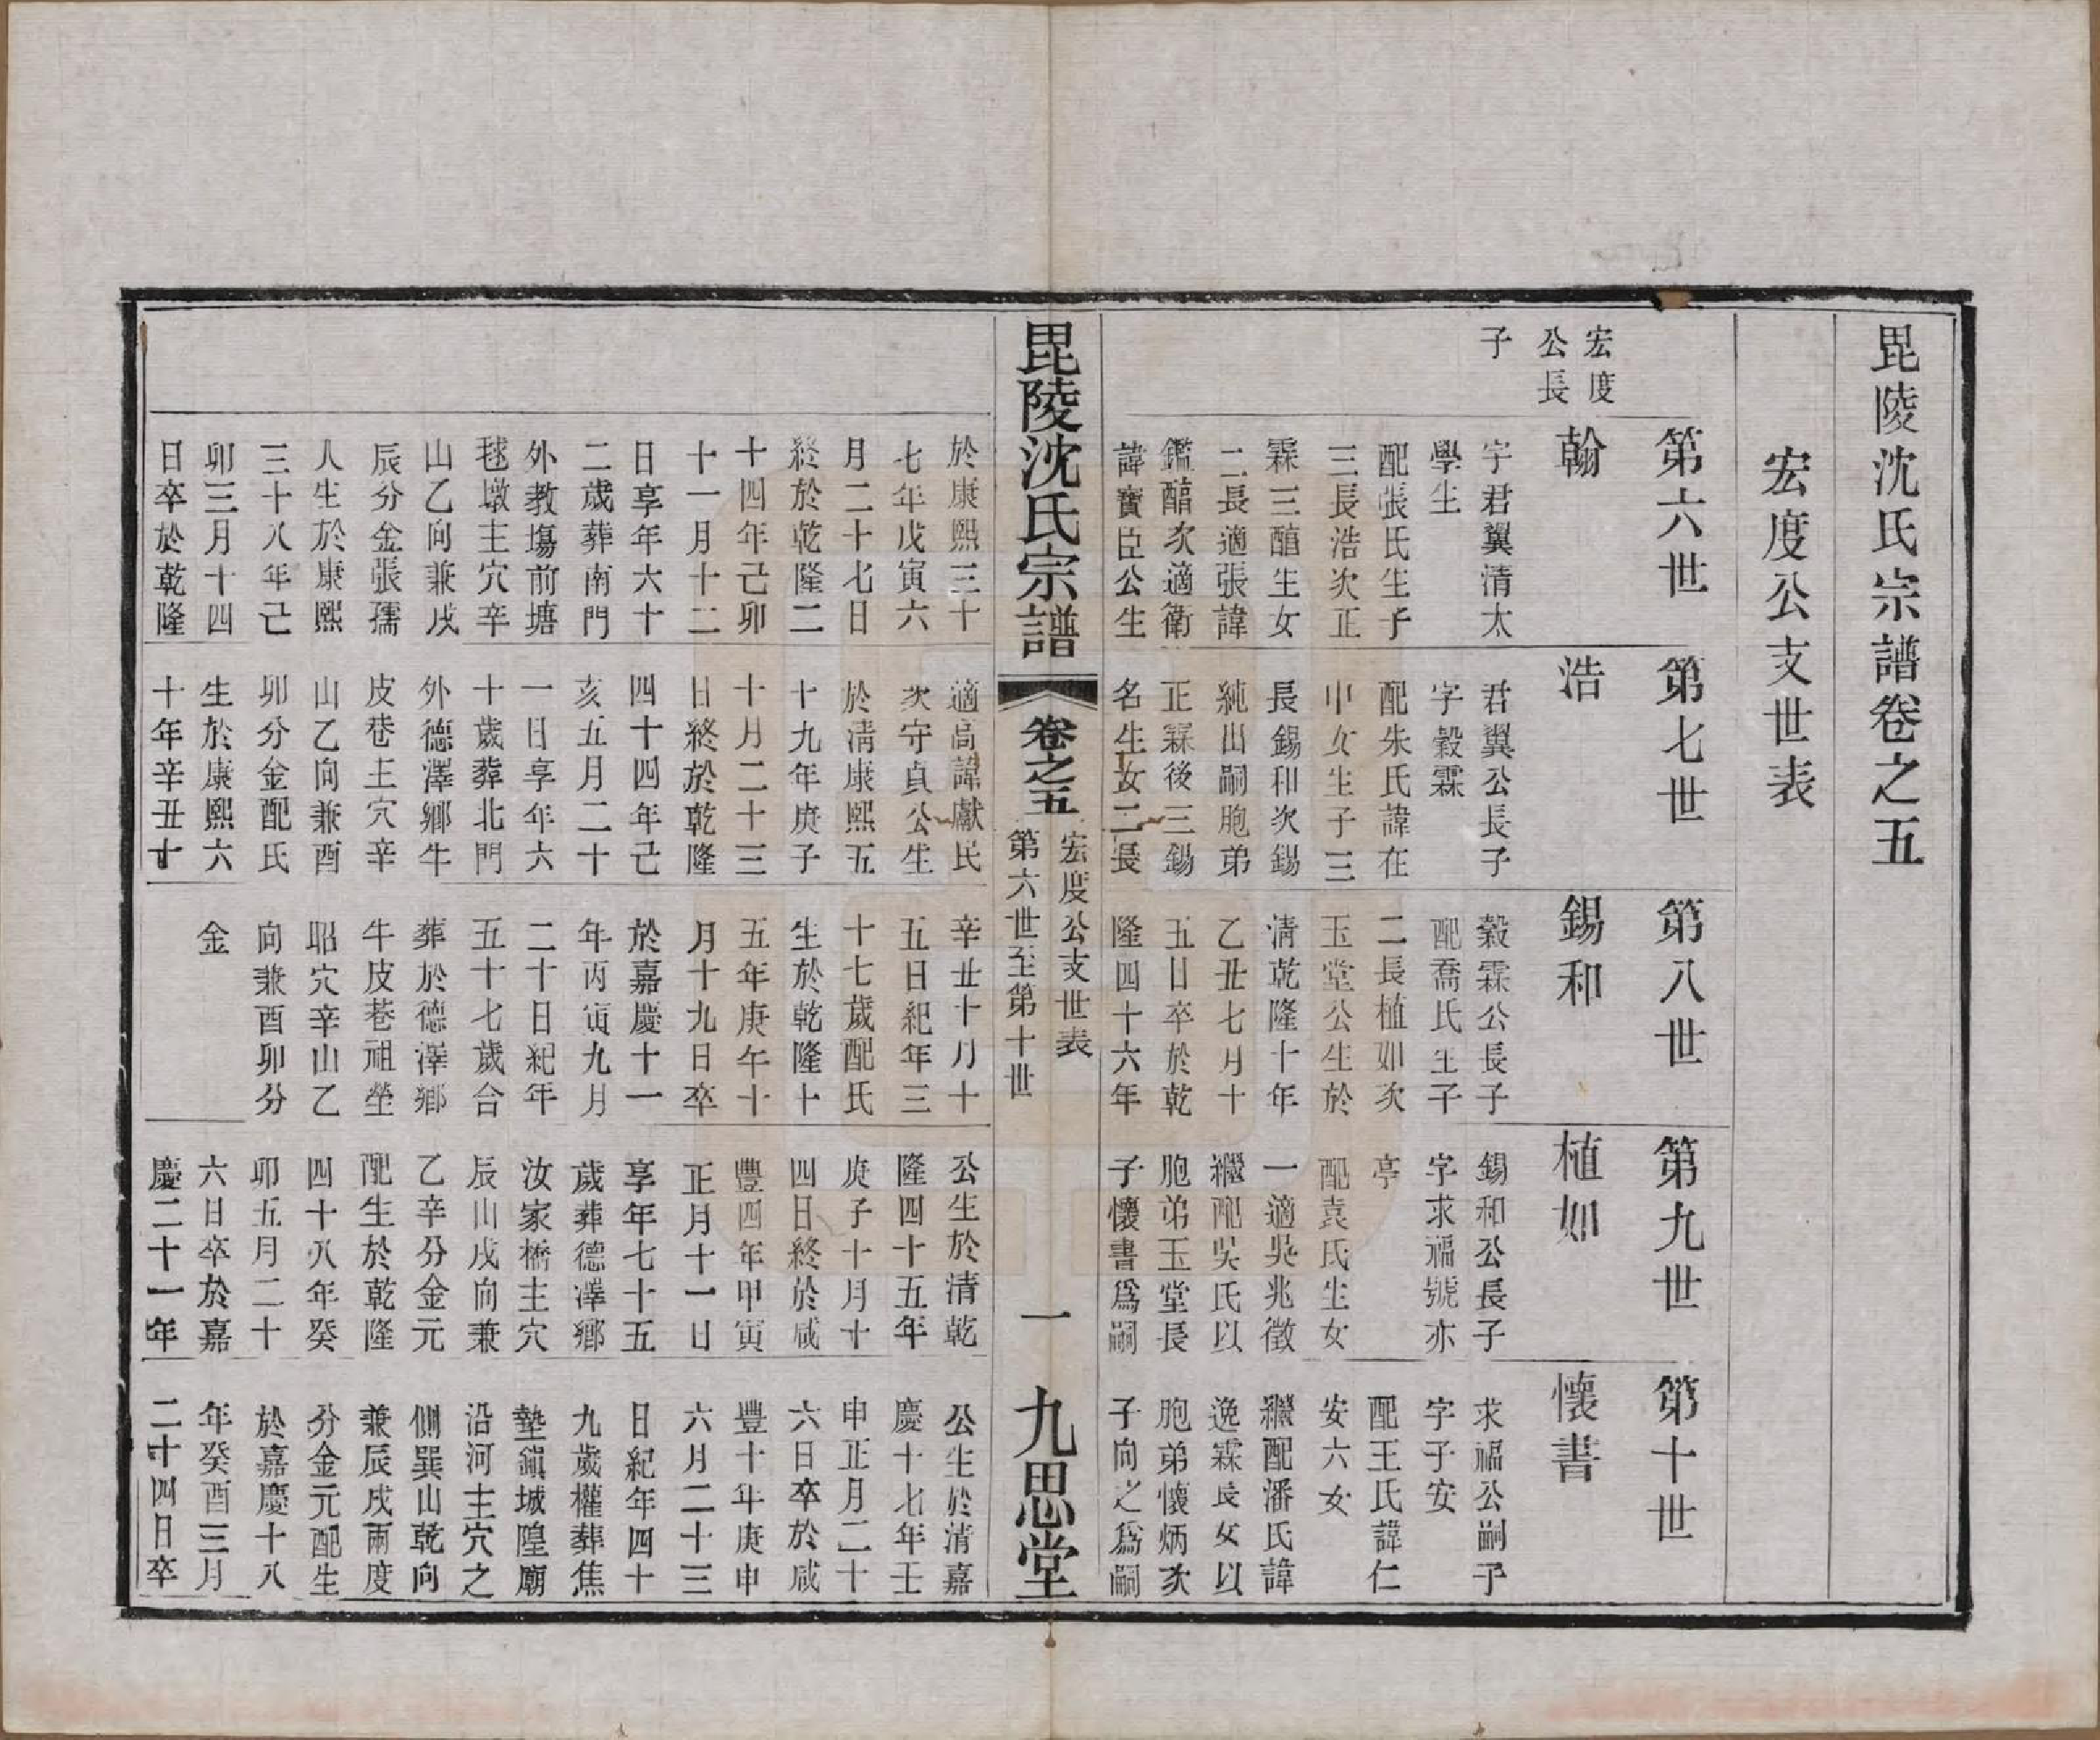 毘陵沈氏宗譜卷之五
宏度公支世表
第六世
第七世
第八世
第九世
第十世
宏度
公長
子
翰
字君翼清太
學生
配張氏生子
三長浩次正
霖三醕生女
二長適張諱
鑑醕次適衛
諱寶臣公生
於康熙三十
七年戊寅六
月二十七日
終於乾隆二
十四年己卯
十一月十二
日享年六十
二歲葬南門
外教塲前塘
毬墩主穴辛
山乙向兼戌
辰分金張孺
人生於康熙
三十八年己
卯三月十四
日卒於乾隆
浩
君翼公長子
字穀霖
配朱氏諱在
中女生子三
長錫和次錫
純出嗣胞弟
正霖後三錫
名生女二長
適高諱獻民
次守貞公生
於清康熙五
十九年庚子
十月二十三
日終於乾隆
四十四年己
亥五月二十
一日享年六
十歲葬北門
外德澤鄉牛
皮巷主穴辛
山乙向兼酉
卯分金配氏
生於康熙六
十年辛丑十
錫和
穀霖公長子
配喬氏生子
二長植如次
玉堂公生於
清乾隆十年
乙丑七月十
五日卒於乾
隆四十六年
辛丑十月十
五日紀年三
十七歲配氏
生於乾隆十
五年庚午十
月十九日卒
於嘉慶十一
年丙寅九月
二十日紀年
五十七歲合
葬於德澤鄉
牛皮巷祖塋
昭穴辛山乙
向兼酉卯分
金
植如
錫和公長子
字求福號亦
亭
配袁氏生女
一適吳兆徵
繼配吳氏以
胞弟玉堂長
子懷書爲嗣
公生於清乾
隆四十五年
庚子十月十
四日終於咸
豐四年甲寅
正月十一日
享年七十五
歲葬德澤鄉
汝家橋主穴
辰山戌向兼
乙辛分金元
配生於乾隆
四十八年癸
卯五月二十
六日卒於嘉
慶二十一年
懷書
求福公嗣子
字子安
配王氏諱仁
安六女
繼配潘氏諱
逸霖長女以
胞弟懷炳次
子向之爲嗣
公生於清嘉
慶十七年壬
申正月二十
六日卒於咸
豐十年庚申
六月二十三
日紀年四十
九歲權葬焦
墊鎭城隍廟
沿河主穴之
側巽山乾向
兼辰戌兩度
分金元配生
於嘉慶十八
年癸酉三月
二十四日卒
毘陵沈氏宗譜
卷之五
宏度公支世表
第六世至第十世
一
九思堂